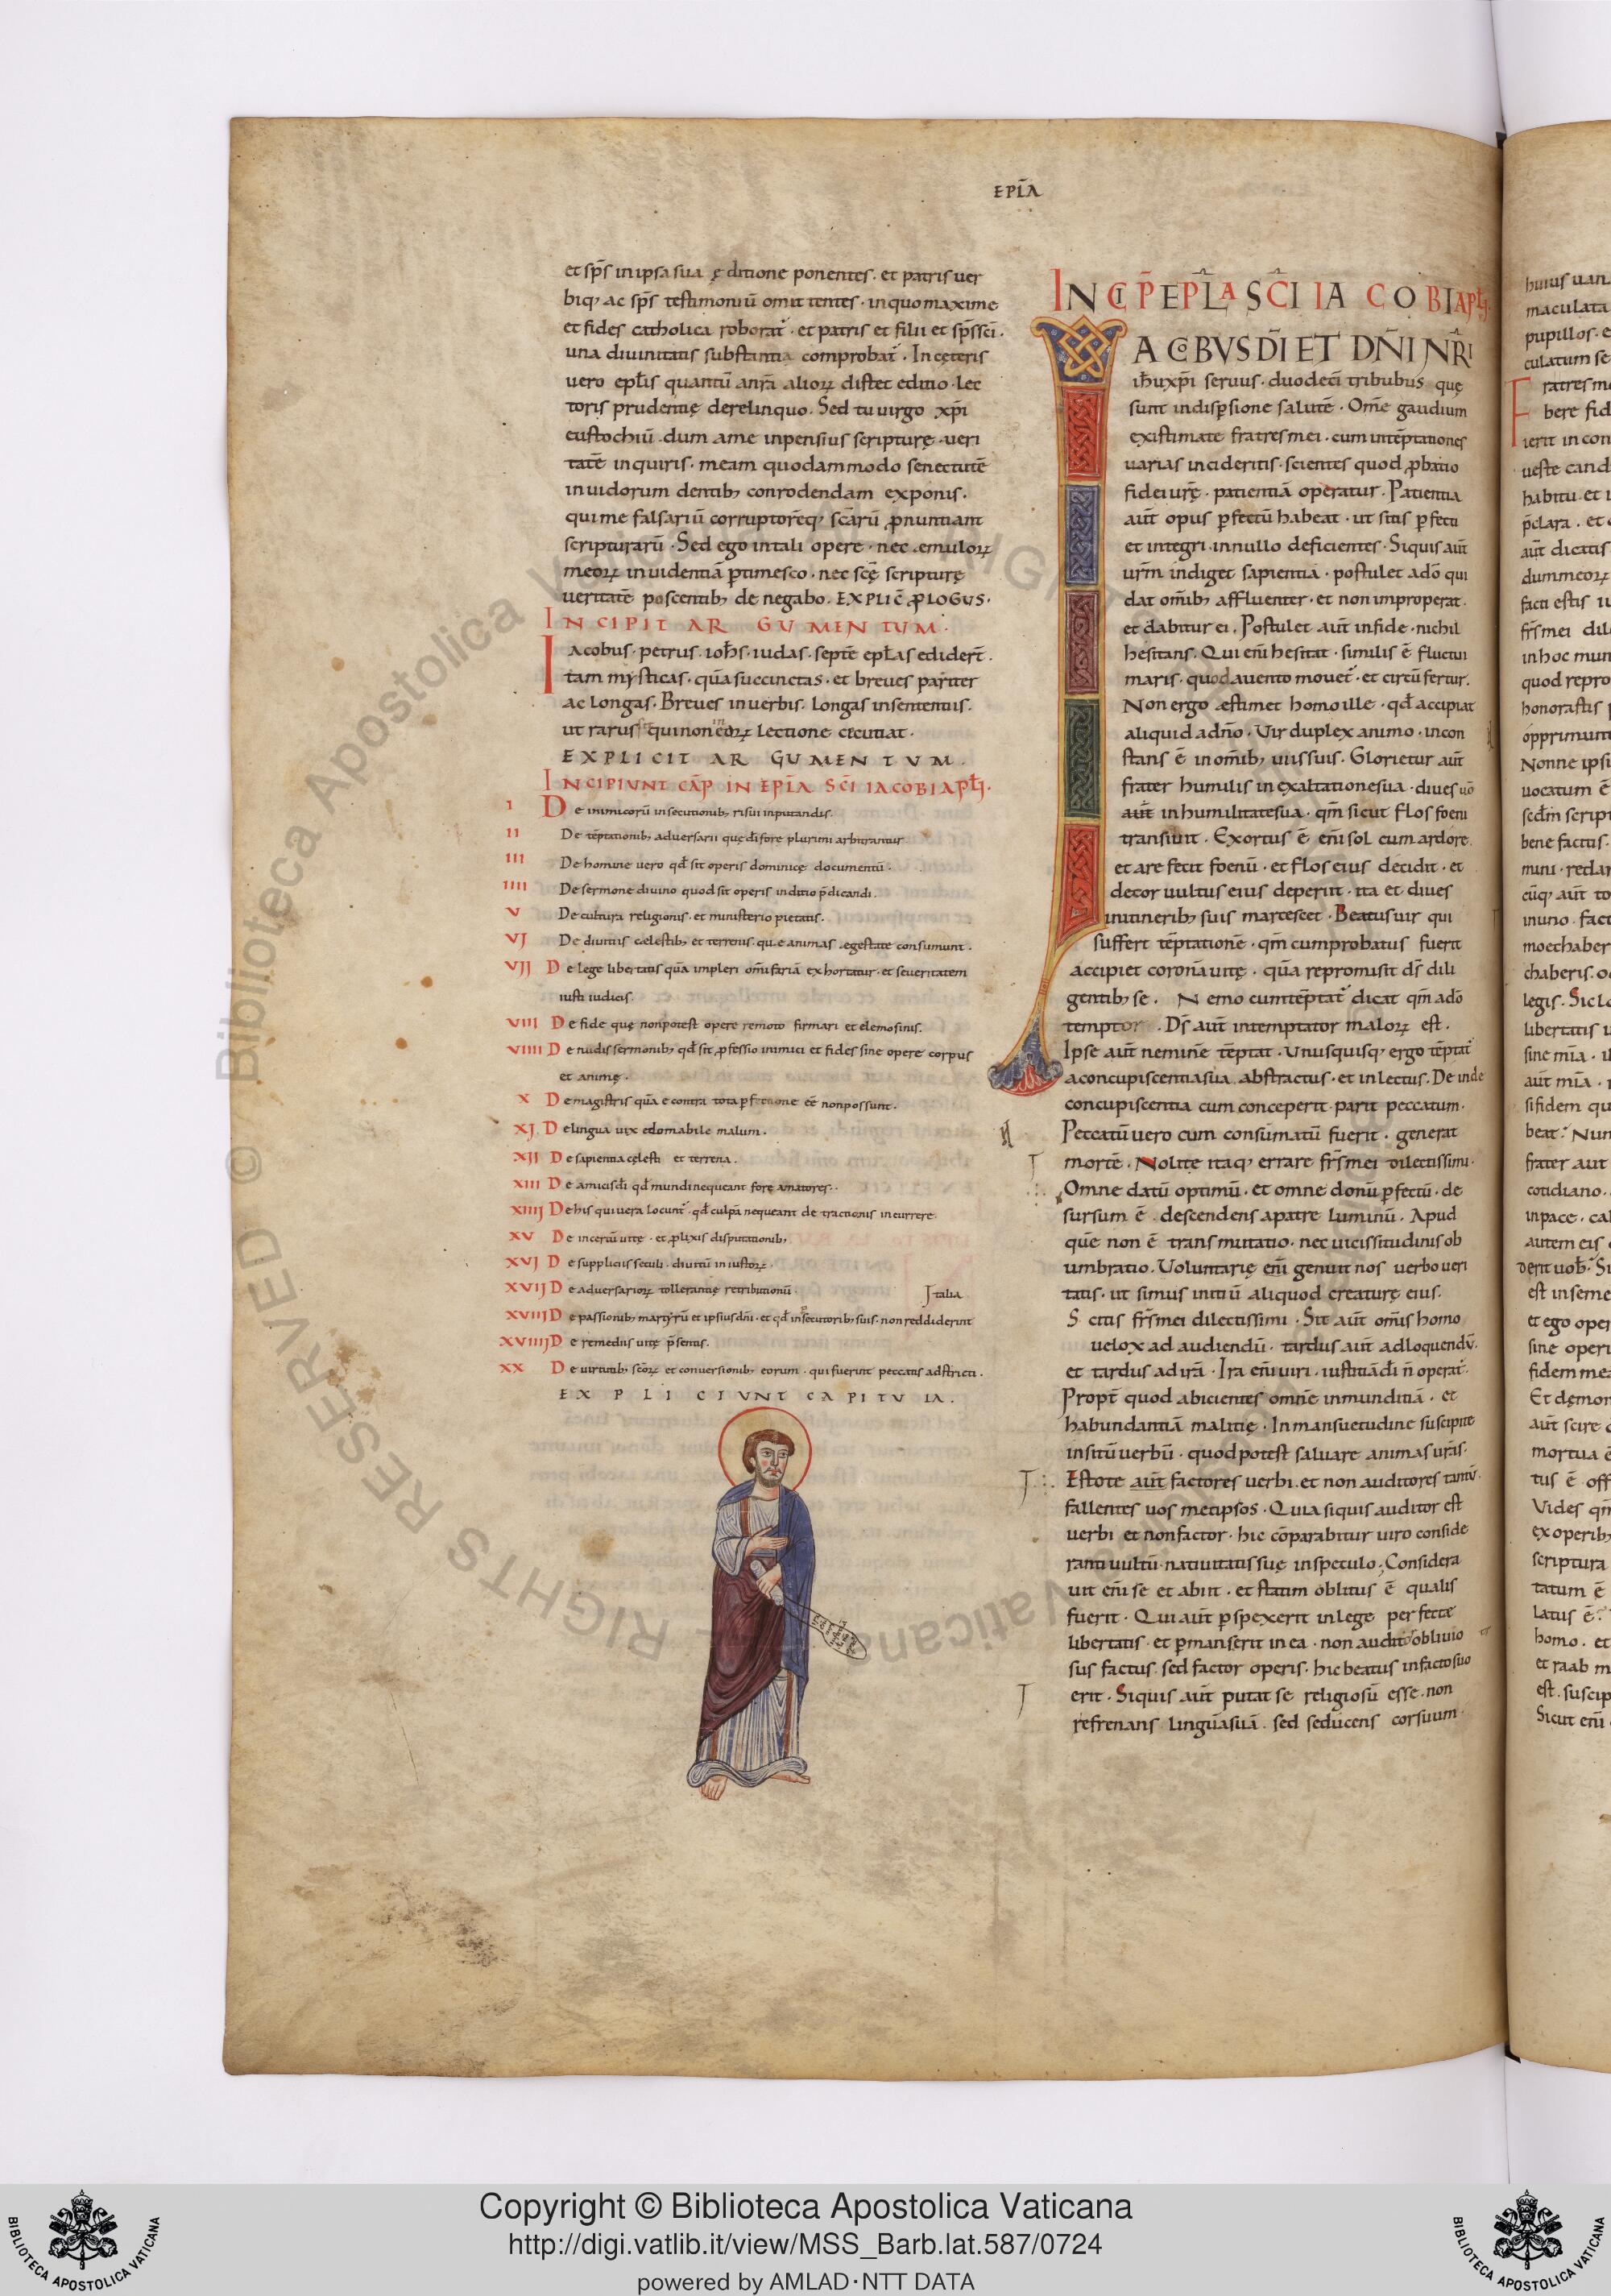 EPL̄A
et sp̄s in ipsa sua ęditione ponentes · et patris ver
biq; ac sp̄s testimoniū omittentes · in quo maxime
et fides catholica roborat᷑ · et patris et filii et sp̄s sc̄i ·
una divinitatis substantia comprobat᷑ · In cęteris
vero epl̄is quantū a nr̄a alioꝝ distet editio · lec
toris prudentię derelinquo · Sed tu virgo xp̄i
eustochiū · dum a me inpensius scripturę · veri
tatē inquiris · meam quodammodo senectutē
invidorum dentib; conrodendam exponis ·
qui me falsariū corruptorēq; scārū ꝓnuntiant
scripturarū · Sed ego in tali opere · nec emuloꝝ
meoꝝ invidentiā ꝑtimesco · nec scę̄ scripturę
veritatē poscentib; denegabo · EXPLIC̄ ꝒLOGUS ·
INCIPIT ARGUMENTUM ·
Iacobus · petrus · ioh̄s · iudas · septē epl̄as edidert̄ ·
tam mysticas · quā succinctas · et breves pariter
ac longas · Breves in verbis · longas in sententiis ·
ut rarus sit qui non in eoꝝ lectione cecutiat ·
EXPLICIT ARGUMENTUM ·
INCIPIUNT CAP̄ IN EPL̄A SC̄I IACOBI APL̄I ·
I De inimicorū insecutionib; risui inputandis ·
II De tēptationib; adversarii quę di fore plurimi arbitrantur
III De homine vero qd̄ sit operis dominicę documentū ·
IIII De sermone divino quod sit operis inditio p̄dicandi ·
V De cultura religionis · et ministerio pietatis ·
VI De divitiis cęlestib; et terrenis · quę animas egestate consumunt ·
VII De lege libertatis quā impleri omīfariā exhortatur · et severitatem
iusti iudicis ·
VIII De fide quę non potest opere remoto firmari et elemosinis ·
VIIII De nudis sermonib; qd̄ sit ꝓfessio inimici et fides sine opere corpus
et animę ·
X De magistris quā e contra tota ꝑfectione eē̄ non possunt ·
XI De lingua vix edomabile malum ·
XII De sapientia cęlesti et terrena ·
XIII De amicis di qd̄ mundi nequeant fore amatores ·
XIIII De his qui vera locunt᷑ · qd̄ culpā nequeant detractionis incurrere ·
XV De incertū vitę · et ꝓlixis disputationib;
XVI De suppliciis seculi · divitū iniustoꝝ ·
XVII De adversarioꝝ tollerantię retributionū ·
Italia
XVIII De passionib; martyrū et ipsius dn̄i · et qd̄ insecutorib; suis · non reddiderint
XVIIII De remediis vitę p̄sentis ·
XX De virtutib; scōꝝ et conversionib; eorum · qui fuerint peccatis adstricti ·
EXPLICIUNT CAPITULA ·
INCIP̄ EPL̄A SC̄I IACOBI APL̄I ·
IACOBVS DĪ ET DN̄I NR̄I
ih̄u xp̄i servus · duodecī tribubus quę
sunt in dispsione salutē · Omē gaudium
existimate fratres mei · cum in tēptationes
varias incideritis · scientes quod ꝓbatio
fidei vrę̄ · patientiā operatur · Patientia
aut̄ opus ꝑfectū habeat · ut sitis ꝑfecti
et integri in nullo deficientes · Siquis aut̄
vrm̄ indiget sapientiā · postulet a dō qui
dat omīb; affluenter · et non improperat ·
et dabitur ei · Postulet aut̄ in fide · nichil
hesitans · Qui enī hesitat · similis ē fluctui
maris · quod a vento movet᷑ · et circū fertur ·
Non ergo ęstimet homo ille · qd̄ accipiat
aliquid a dn̄o · Vir duplex animo · incon
stans ē in omīb; viis suis · Glorietur aut̄
frater humilis in exaltatione sua · dives vō
aut̄ in humilitate sua · qm̄ sicut flos foeni
transiuit · Exortus ē enī sol cum ardore ·
et arefecit foenū · et flos eius decidit · et
decor vultus eius deperiit · ita et dives
in itinerib; suis marcescet · Beatus vir qui
suffert tēptationē · qm̄ cum probatus fuerit
accipiet coronā vitę · quā repromisit ds̄ dili
gentib; se · Nemo cum tēptat᷑ dicat qm̄ a dō
temptor · Ds̄ aut̄ intemptator maloꝝ est ·
Ipse aut̄ neminē tēptat · Unusquisq; ergo tēptat᷑
a concupiscentia sua abstractus · et inlectus · Deinde
concupiscentia cum conceperit · parit peccatum ·
Peccatū vero cum consūmatū fuerit · generat
mortē · Nolite itaq; errare frs̄ mei dilectissimi ·
Omne datū optimū · et omne donū ꝑfectū · de
sursum ē · descendens a patre luminū · Apud
quē non ē transmutatio · nec vicissitudinis ob
umbratio · Voluntarię enī genuit nos verbo veri
tatis · ut simus initiū aliquod creaturę eius ·
Scitis frs̄ mei dilectissimi · Sit aut̄ omīs homo
velox ad audiendū · tardus aut̄ ad loquendū ·
et tardus ad irā · Ira enī viri · iustitiā di n̄ operat᷑ ·
Propt̄ quod abicientes omnē inmunditiā · et
habundantiā malitię · In mansuetudine suscipite
insitū verbū · quod potest salvare animas vrās ·
Estote aut̄ factores verbi · et non auditores tantū ·
fallentes vos metipsos · Quia siquis auditor est
verbi et non factor · hic cōparabitur viro conside
ranti vultū nativitatis suę in speculo · Considera
vit enī se et abiit · et statim oblitus ē qualis
fuerit · Qui aut̄ ꝑspexerit in lege perfecte
libertatis · et ꝑmanserit in ea · non auditor oblivio
sus factus · sed factor operis · hic beatus in facto suo
erit · Siquis aut̄ putat se religiosū esse · non
refrenans linguā suā · sed seducens cor suum ·
Copyright © Biblioteca Apostolica Vaticana
http://digi.vatlib.it/view/MSS_Barb.lat.587/0724
powered by AMLAD·NTT DATA
BIBLIOTECA APOSTOLICA VATICANA
BIBLIOTECA APOSTOLICA VATICANA